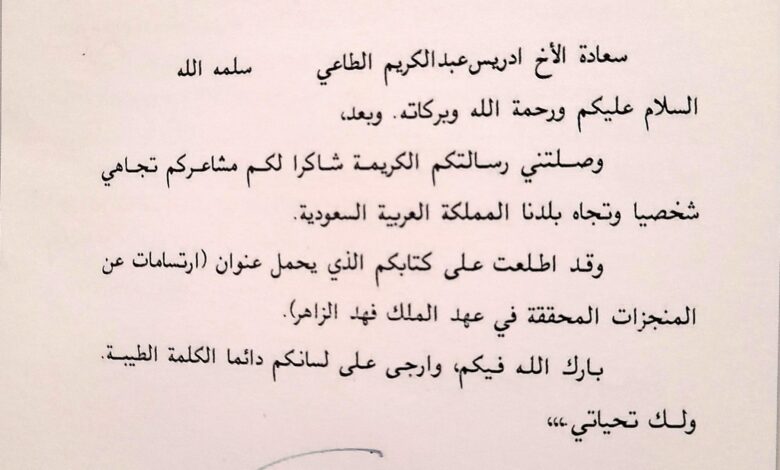 سعادة الأخ ادريس عبدالكريم الطاعي سلمه الله
السلام عليكم ورحمة الله وبركاته. وبعد،
وصلتني رسالتكم الكريمة شاكرا لكم مشاعركم تجاهي
شخصيا وتجاه بلدنا المملكة العربية السعودية.
وقد اطلعت على كتابكم الذي يحمل عنوان (ارتسامات عن
المنجزات المحققة في عهد الملك فهد الزاهر).
بارك الله فيكم، وارجى على لسانكم دائما الكلمة الطيبة.
ولك تحياتي،،،